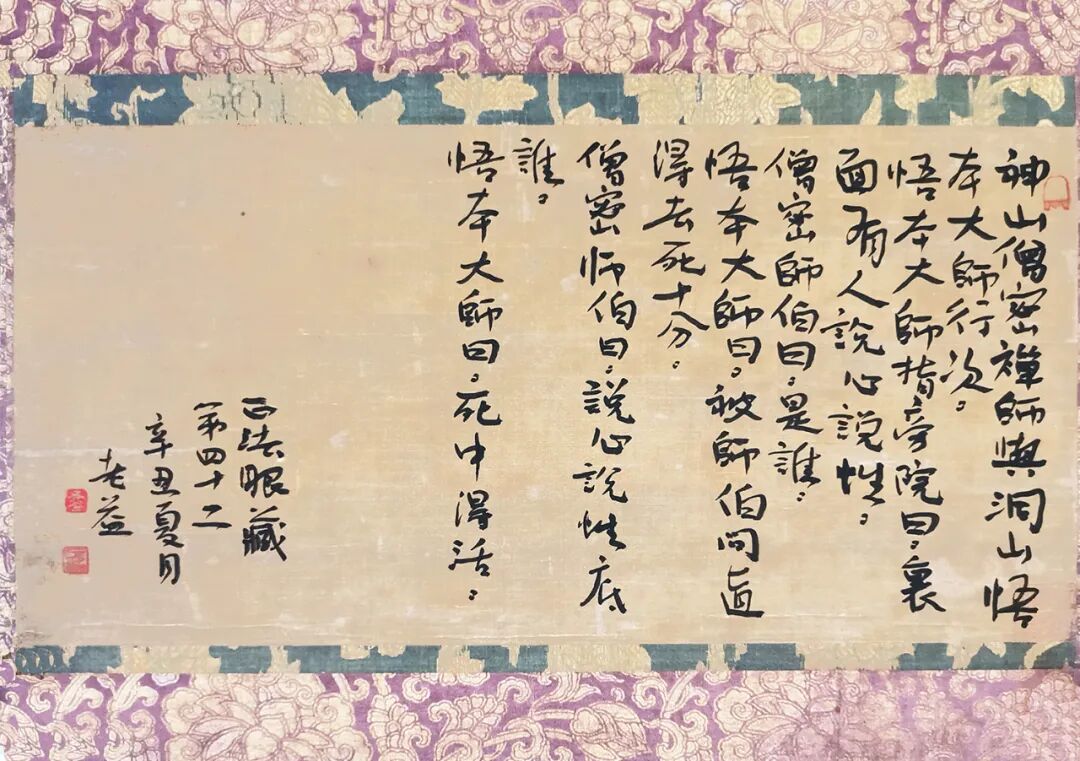 神山僧密禪師與洞山悟
本大師行次。
悟本大師指旁院曰。裏
面有人說心說性。
僧密師伯曰。是誰。
悟本大師曰。被師伯問直
得去死十分。
僧密師伯曰。說心說性底
誰。
悟本大師曰。死中得活。
正法眼藏
第四十二
辛丑夏月
老益